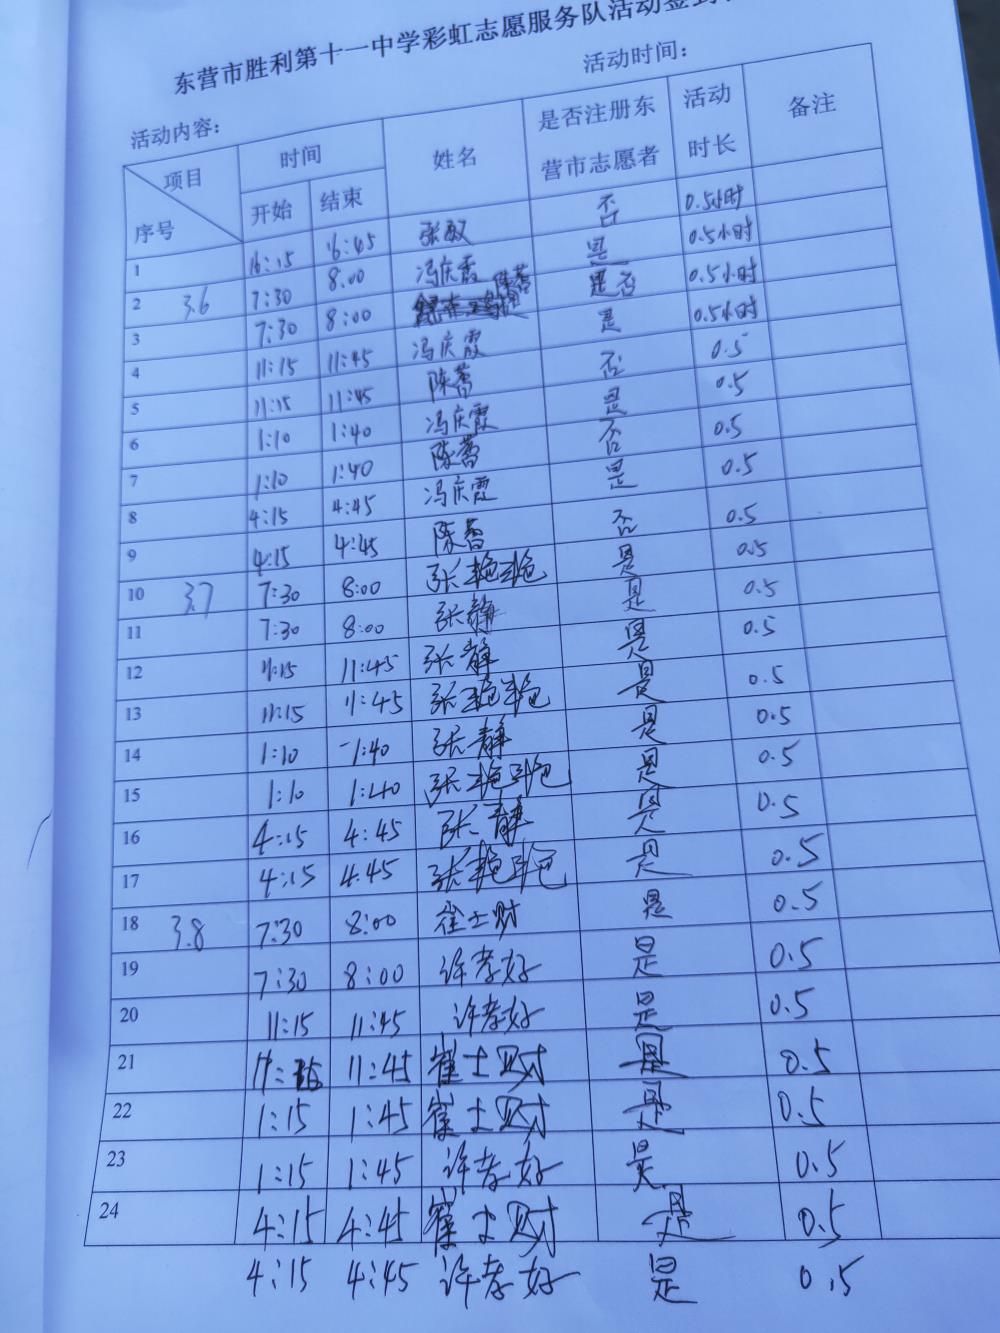 东营市胜利第十一中学彩虹志愿服务队活动签到
活动内容： 活动时间：
项目 序号 时间 开始 结束 姓名 是否注册东营市志愿者 活动时长 备注
1 16:15 16:45 张敏 否 0.5小时
2 3.6 7:30 8:00 冯庆霞 是 0.5小时
3 7:30 8:00 陈蕾 否 0.5小时
4 11:15 11:45 冯庆霞 是 0.5小时
5 11:15 11:45 陈蕾 否 0.5
6 1:10 1:40 冯庆霞 是 0.5
7 1:10 1:40 陈蕾 否 0.5
8 4:15 4:45 冯庆霞 是 0.5
9 4:15 4:45 陈蕾 否 0.5
10 3.7 7:30 8:00 张艳艳 是 0.5
11 7:30 8:00 张静 是 0.5
12 11:15 11:45 张静 是 0.5
13 11:15 11:45 张艳艳 是 0.5
14 1:10 1:40 张静 是 0.5
15 1:10 1:40 张艳艳 是 0.5
16 4:15 4:45 张静 是 0.5
17 4:15 4:45 张艳艳 是 0.5
18 3.8 7:30 8:00 崔士财 是 0.5
19 7:30 8:00 许孝好 是 0.5
20 11:15 11:45 许孝好 是 0.5
21 11:15 11:45 崔士财 是 0.5
22 1:15 1:45 崔士财 是 0.5
23 1:15 1:45 许孝好 是 0.5
24 4:15 4:45 崔士财 是 0.5
4:15 4:45 许孝好 是 0.5